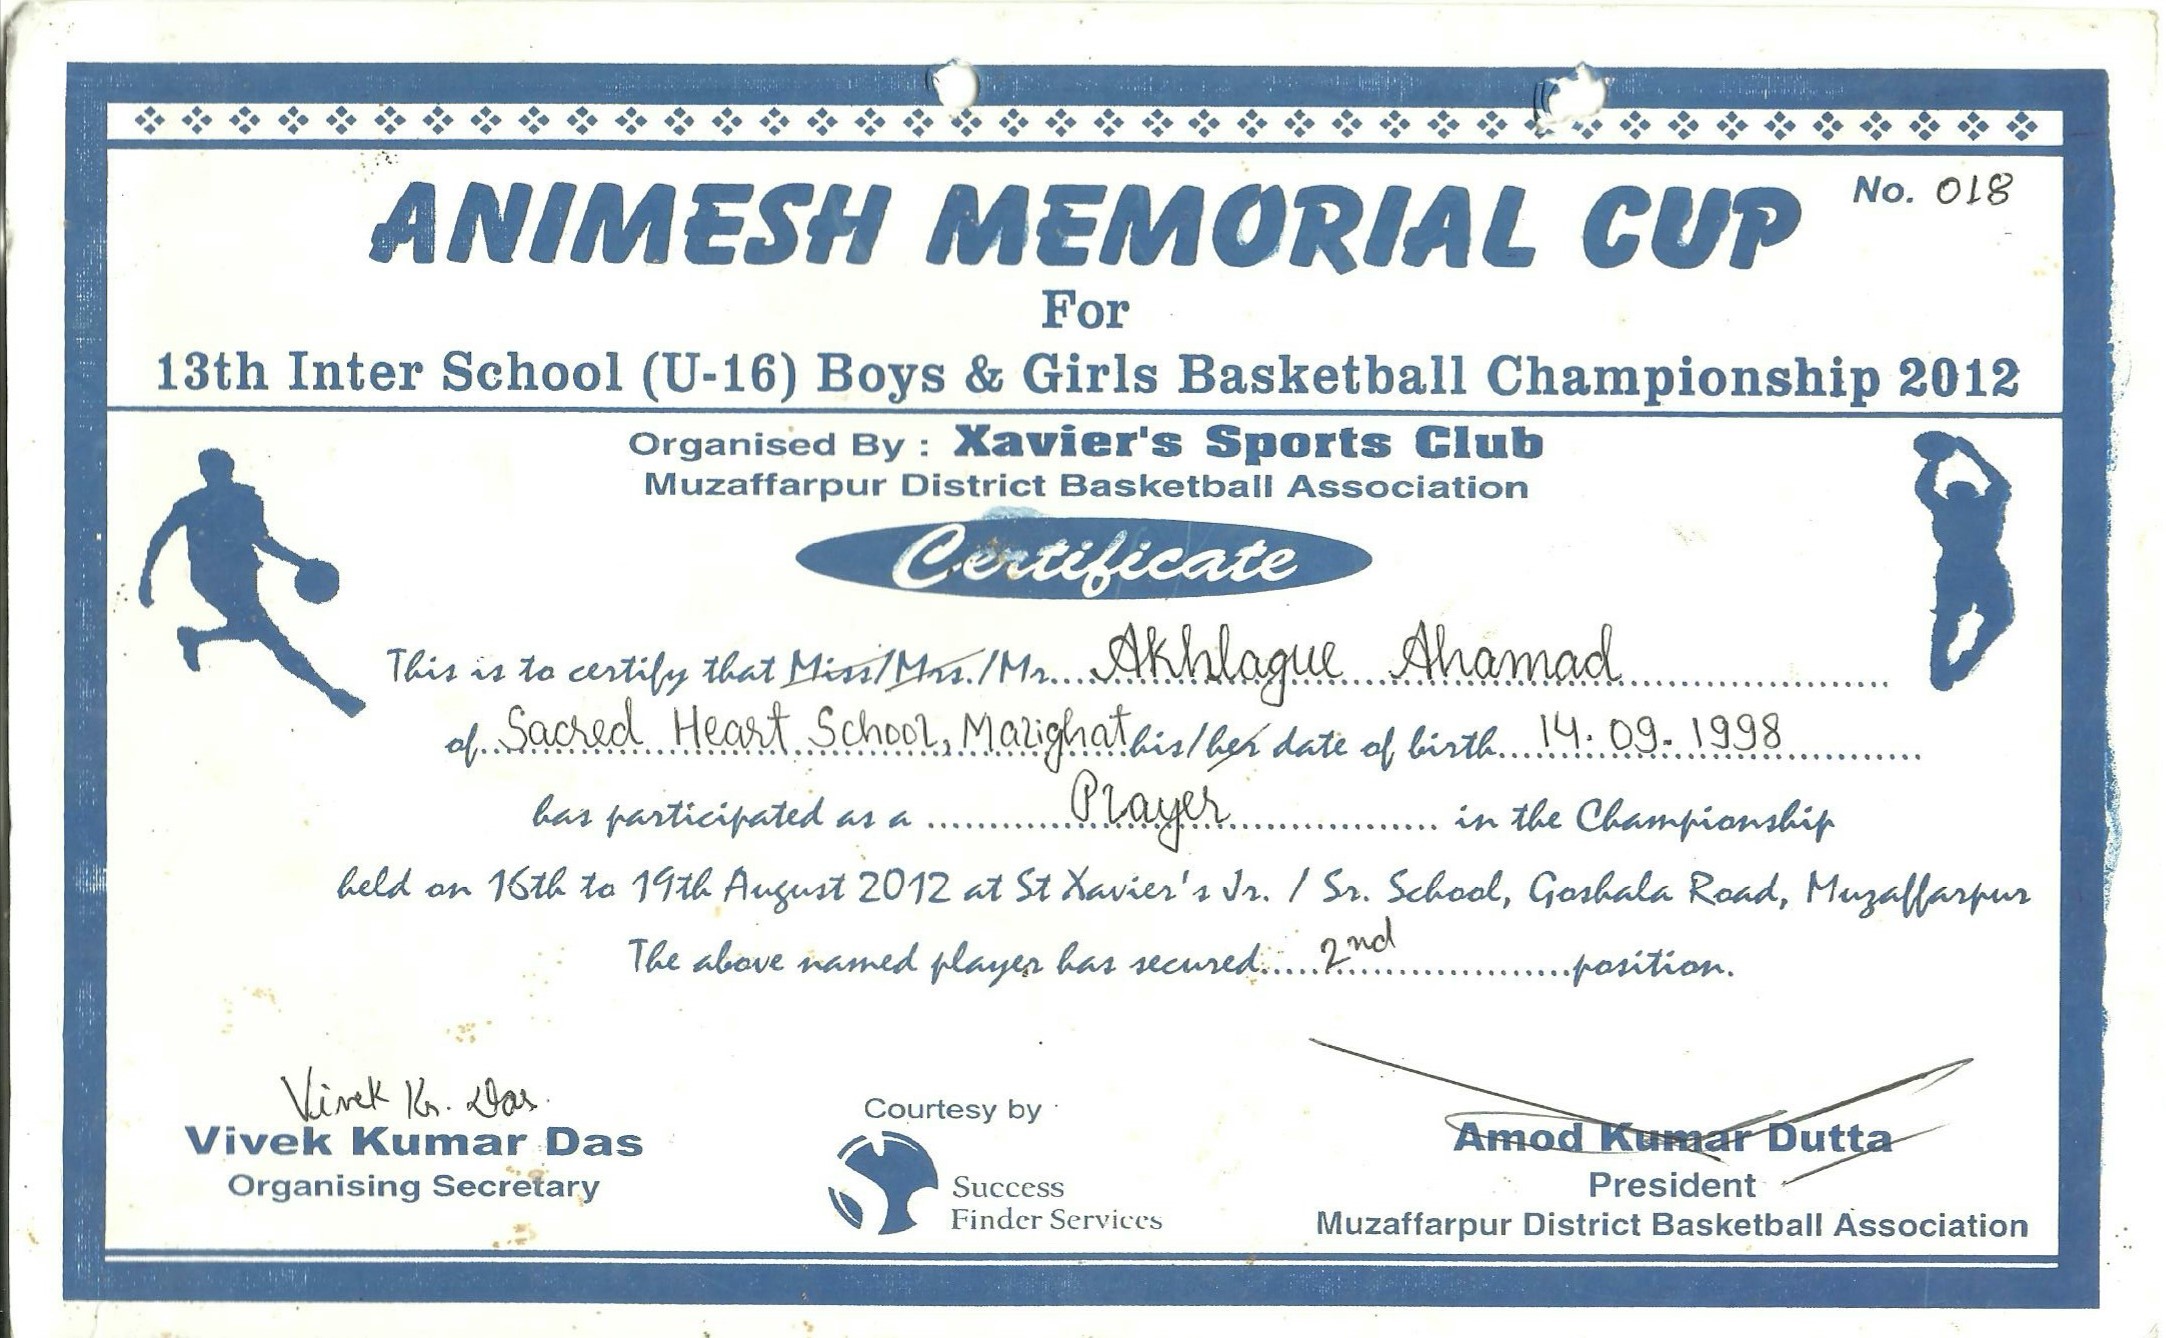 No. 018
ANIMESH MEMORIAL CUP
For
13th Inter School (U-16) Boys & Girls Basketball Championship 2012
Organised By : Xavier's Sports Club
Muzaffarpur District Basketball Association
Certificate
This is to certify that Miss/Mrs./Mr....Akhlague Ahamad....
of..Sacred Heart School, Mazighat his/her date of birth...14.09.1998....
has participated as a ....Player.... in the Championship
held on 16th to 19th August 2012 at St Xavier's Jr. / Sr. School, Goshala Road, Muzaffarpur
The above named player has secured....2nd....position.
Vivek Kr. Das.
Vivek Kumar Das
Organising Secretary
Courtesy by
Success
Finder Services
Amod Kumar Dutta
President
Muzaffarpur District Basketball Association